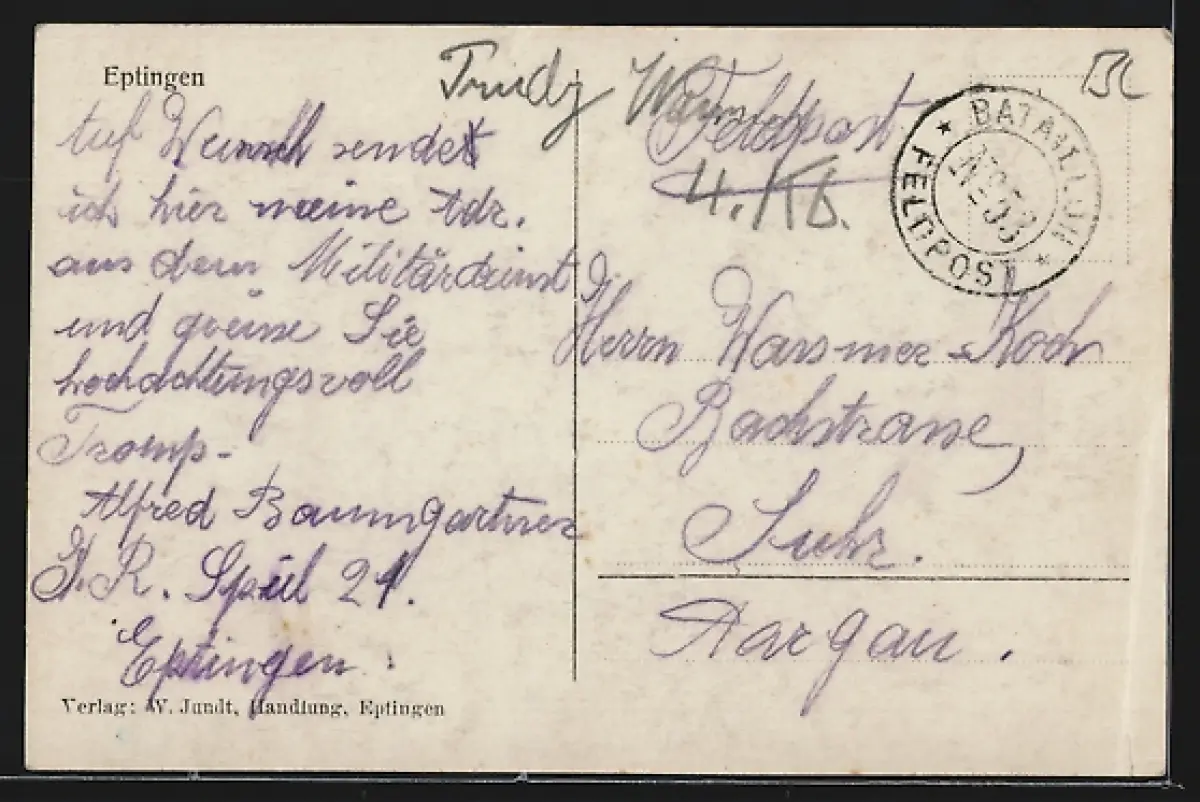 Eptingen
Auf Wunsch sendet
ich hier meine Adr.
aus dem Militärdienst
und grüsse Sie
hochachtungsvoll
Tromp-
Alfred Baumgartner
Spiel 21.
Eptingen.
Verlag: W. Jundt, Handlung, Eptingen
Trudy
Feldpost
4. Kb.
BATAILLON
No 53
FELDPOST
Herrn Wassmer-Koch
Bachstrasse,
Suhr.
Aargau.